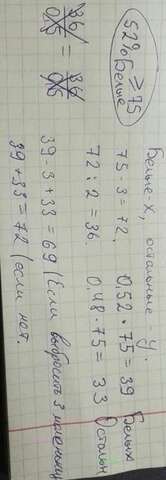 52% ≥ 75
Белые
Белые x, остальные - y.
75 - 3 = 72. 0,52 · 75 = 39 Белых
72 : 2 = 36. 0,48 · 75 = 33 Осталн
39 - 3 + 33 = 69 (Если выбросить 3 масенниц
39 + 33 = 72 (если нот.
36/0,5 = 36/0,5